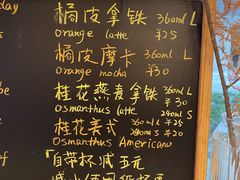 day
橘皮拿铁 360ml L
orange latte ¥25
橘皮摩卡 360ml L
orange mocha ¥30
桂花燕麦拿铁 360ml L
¥30
osmanthus latte 240ml S
桂花美式 360ml ¥25 L
240ml ¥25 S
Osmanthus Americano
自带杯减五元